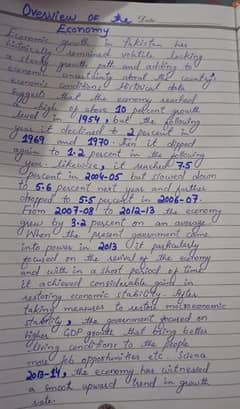 Overview of the
Date
Economy
Economic growth in Pakistan has
historically remained volatile lacking
a steady growth path and adding to
economic uncertainty about the country's
economic conditions. Historical data
suggests that the economy reached
high of about 10 percent growth
level in 1954, but the following
year it declined to 2 percent in
1969 and 1970. Then it dipped
again to 1.2 percent in the following
year. Likewise, it reached 7.5
percent in 2004-05 but slowed down
to 5.6 percent next year and further
dropped to 5.5 percent in 2006-07.
From 2007-08 to 2012-13 the economy
grew by 3.2 percent on an average
When the present government came
into power in 2013 it particularly
focused on the revival of the economy
and with in a short period of time
it achieved considerable gains in
restoring economic stability. After
taking measures to restore macroeconomic
stability, the government focused on
higher GDP growth that bring better
living conditions to the people
more job opportunities etc. Science
2013-14, the economy has witnessed
a smooth upward trend in growth
rate.